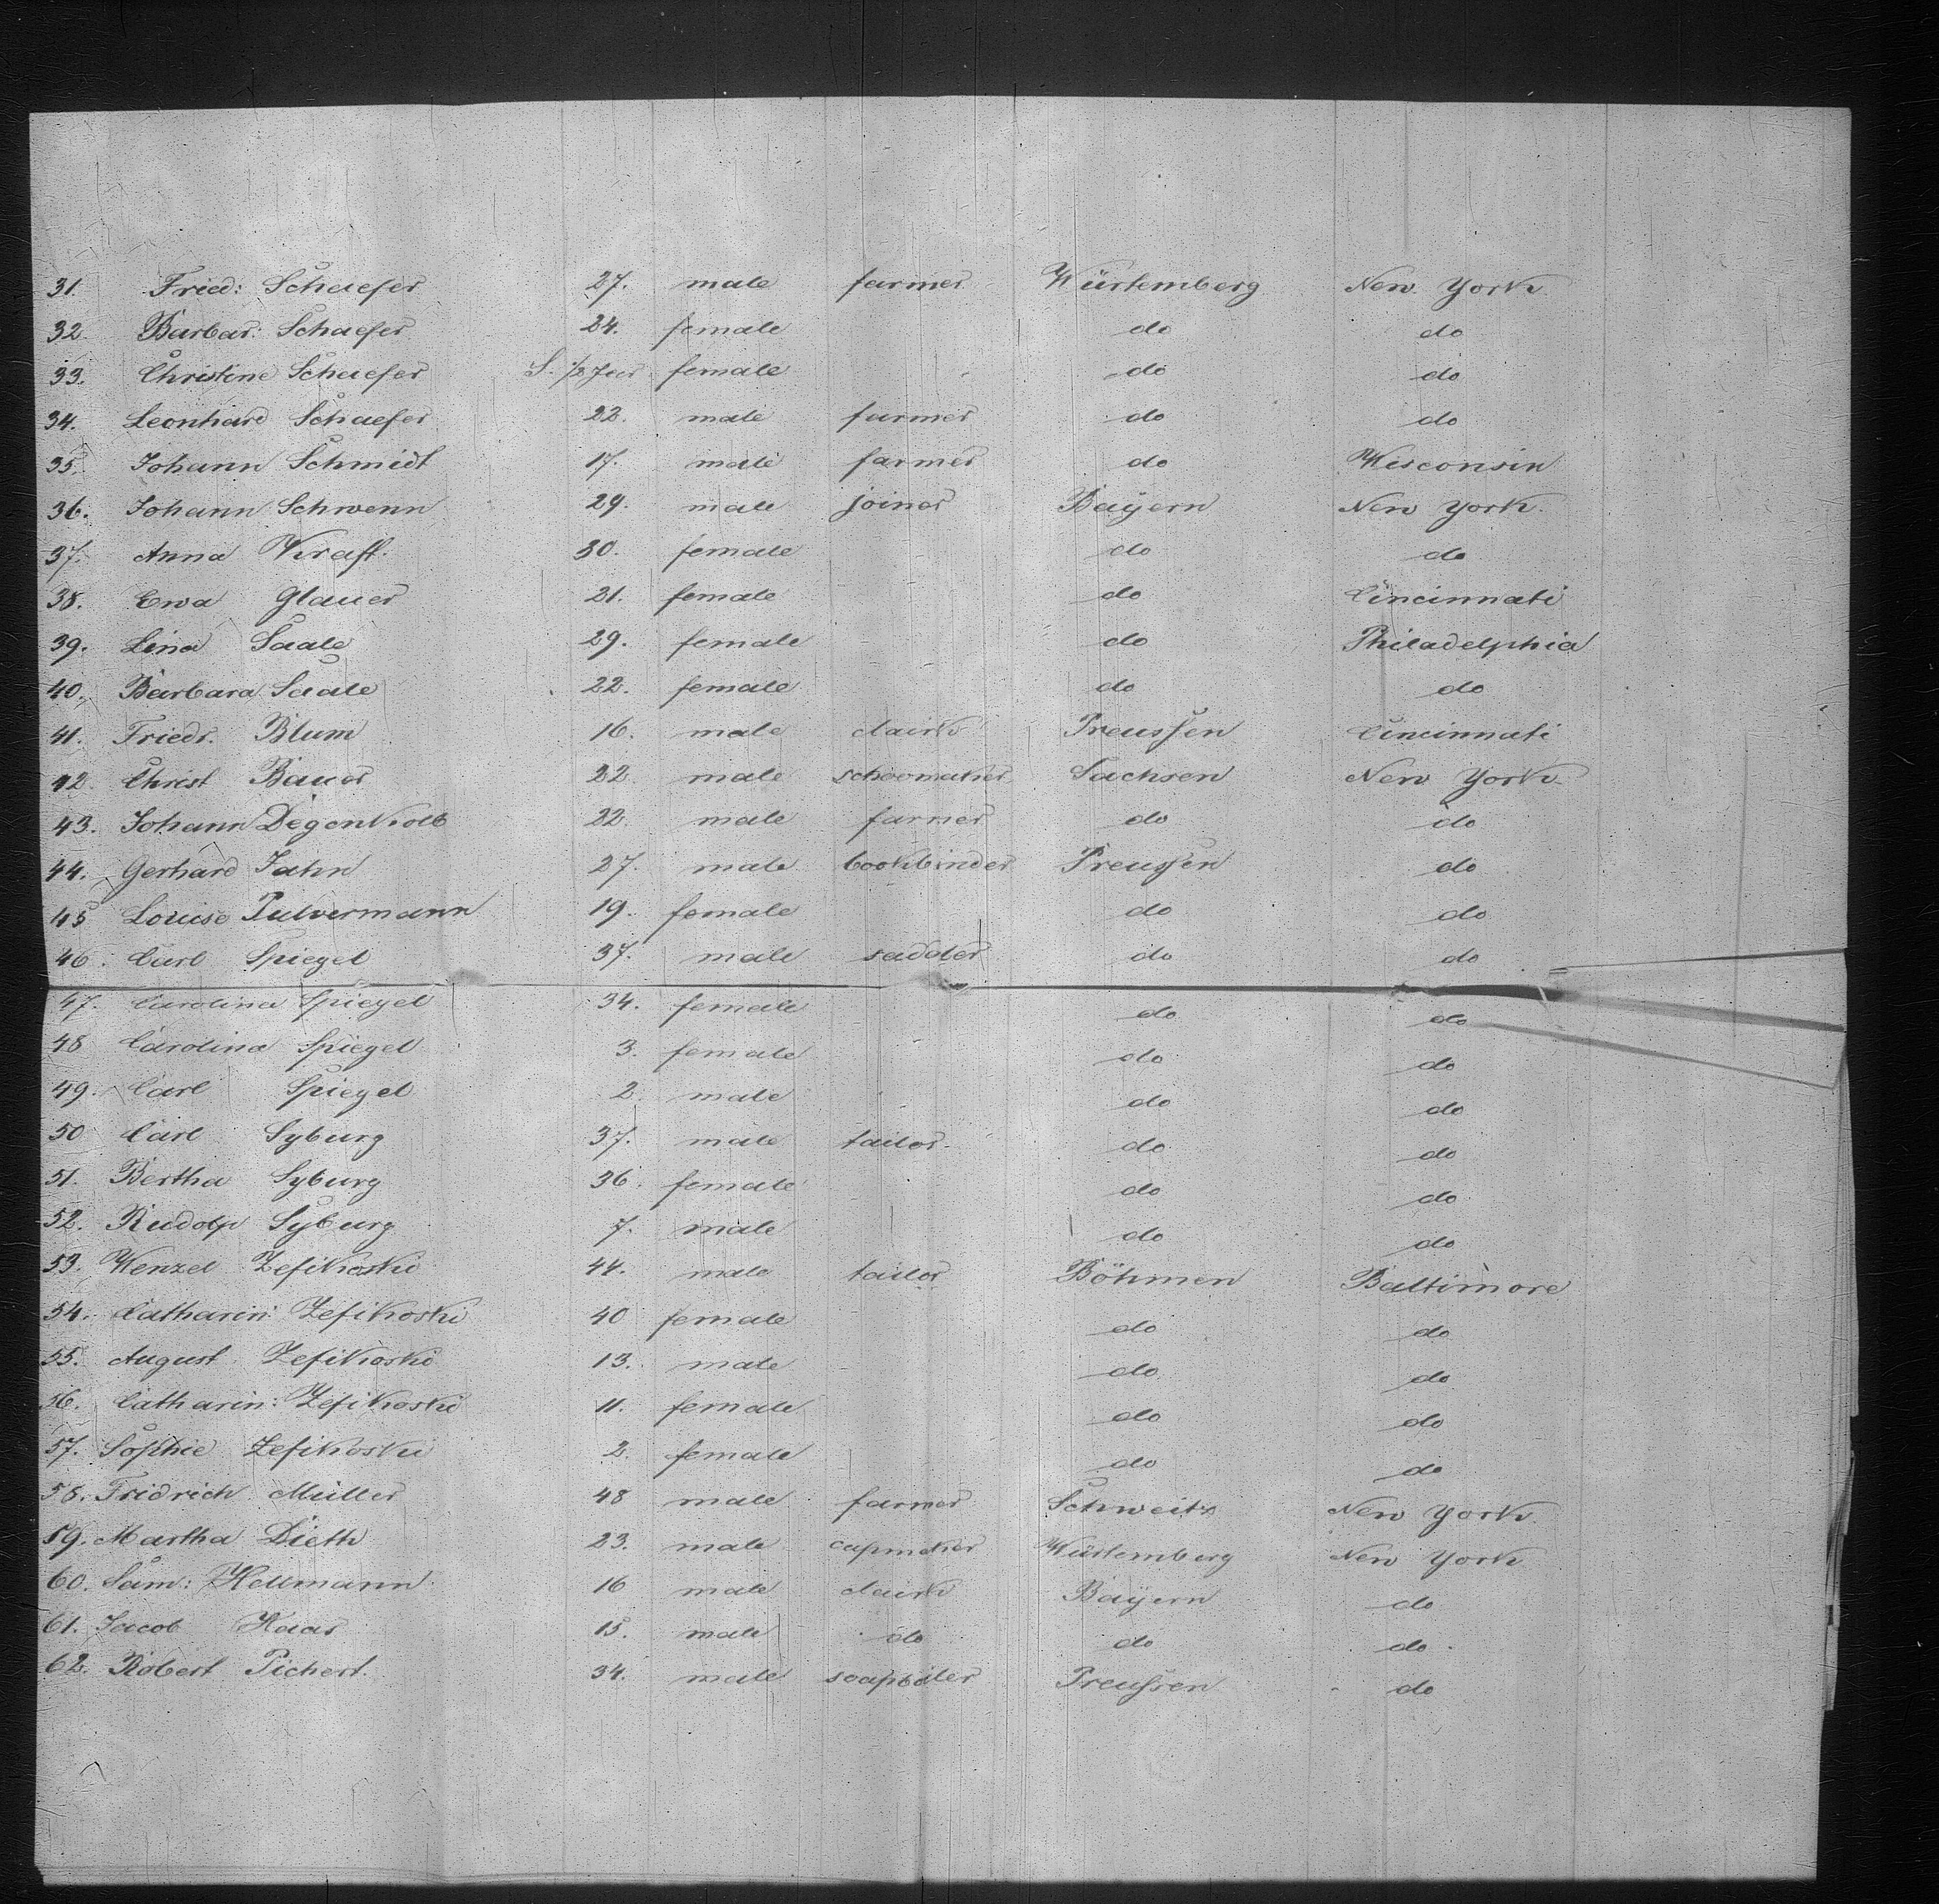 31. Fried: Schaefer 27. male farmer Würtemberg New York
32. Barbar: Schaefer 24. female do do
33. Christine Schaefer S. 1/2 Jear female do do
34. Leonhard Schaefer 22. male farmer do do
35. Johann Schmidt 17. male farmer do Wisconsin
36. Johann Schwenn 29. male joiner Bayern New York.
37. Anna Kraft. 30. female do do
38. Ewa Glauer 21. female do Cincinnati
39. Lina Saale 29. female do Philadelphia
40. Barbara Saale 22. female do do
41. Friedr. Blum 16. male clairk Preussen Cincinnati
42. Christ Bauer 22. male schoomaker Sachsen New York
43. Johann Degenkolb 22. male farmer do do
44. Gerhard Jahn 27. male bookbinder Preussen do
45 Louise Pulvermann 19. female do do
46. Carl Spiegel 37. male saddler do do
47. Carolina Spiegel 34. female do do
48 Carolina Spiegel 3. female do do
49. Carl Spiegel 2. male do do
50 Carl Syburg 37. male tailor. do do
51. Bertha Syburg 36. female do do
52. Rudolp Syburg 7. male do do
53. Wenzel Zefikoski 44. male tailor Böhmen Baltimore
54. Catharin: Zefikoski 40 female do do
55. August Zefikoski 13. male do do
56. Catharin: Zefikoski 11. female do do
57. Sophie Zefikoski 2. female do do
58. Fridrich Müller 48 male farmer Schweitz New York.
59. Martha Dieth 23. male capmaker Würtemberg New York
60. Sam: Hellmann 16 male clairk Bayern do
61. Jacob Haas 15. male do do do
62. Robert Pichert. 34. male soapbiler Preussen do